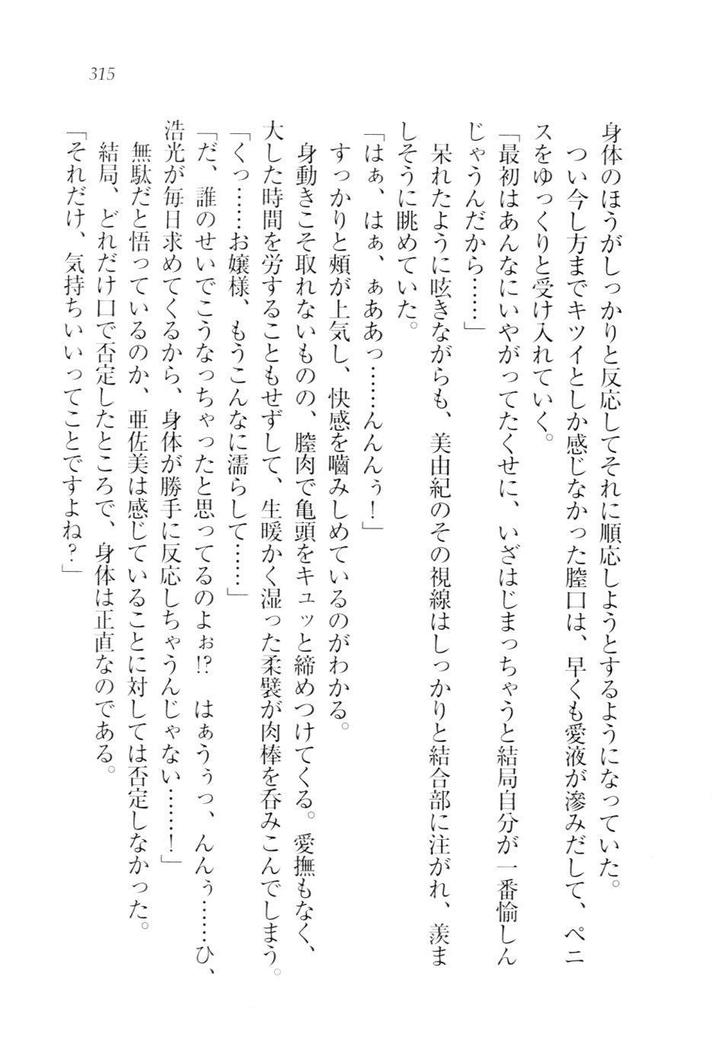 315
身体のほうがしっかりと反応してそれに順応しようとするようになっていた。
つい今し方までキツイとしか感じなかった膣口は、早くも愛液が滲みだして、ペニ
スをゆっくりと受け入れていく。
「最初はあんなにいやがってたくせに、いざはじまっちゃうと結局自分が一番愉しん
じゃうんだから……」
呆れたように呟きながらも、美由紀のその視線はしっかりと結合部に注がれ、羨ま
しそうに眺めていた。
「はぁ、はぁ、ぁああっ……んんんぅ！」
すっかりと頰が上気し、快感を嚙みしめているのがわかる。
身動きこそ取れないものの、膣肉で亀頭をキュッと締めつけてくる。愛撫もなく、
大した時間を労することもせずして、生暖かく湿った柔襞が肉棒を呑みこんでしまう。
「くっ……お嬢様、もうこんなに濡らして……」
「だ、誰のせいでこうなっちゃったと思ってるのよぉ!?　はぁうぅっ、んんぅ……ひ、
浩光が毎日求めてくるから、身体が勝手に反応しちゃうんじゃない……！」
無駄だと悟っているのか、亜佐美は感じていることに対しては否定しなかった。
結局、どれだけ口で否定したところで、身体は正直なのである。
「それだけ、気持ちいいってことですよね？」